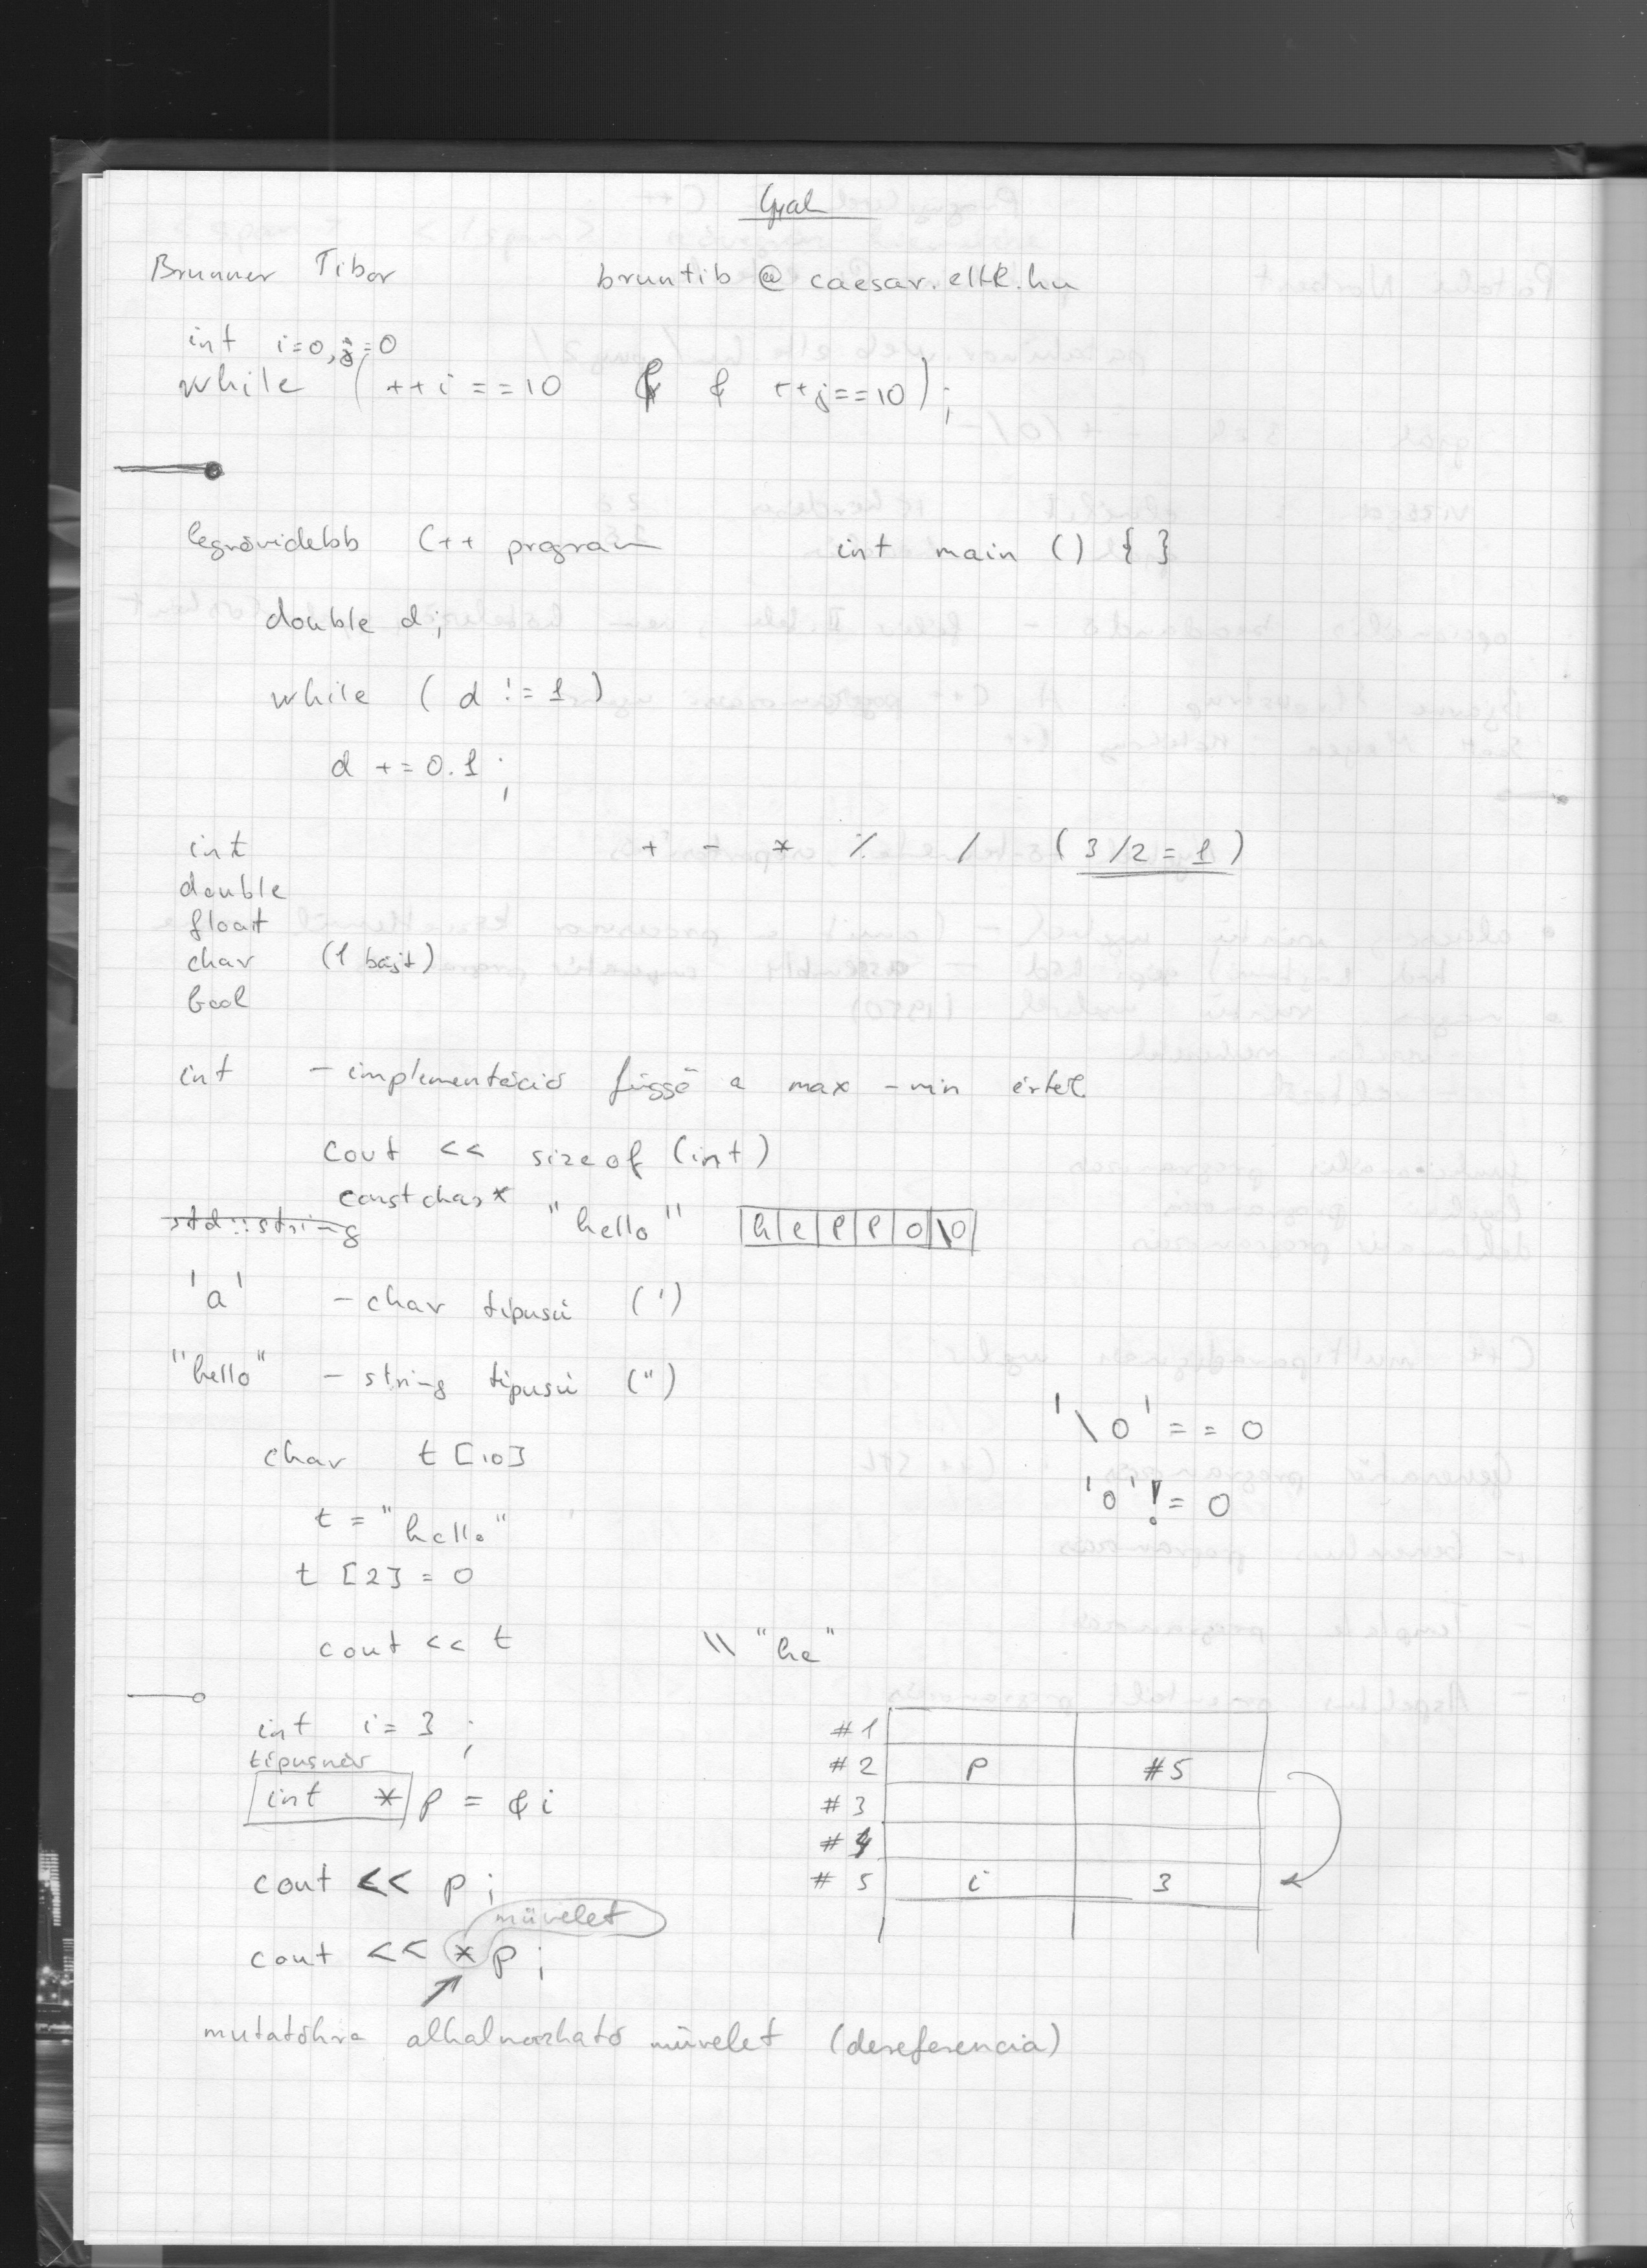 Gyak
Brunner Tibor bruntib @ caesar.elte.hu
int i=0, j=0
while ( ++i == 10 & & ++j == 10 ) ;
legrövidebb C++ program int main () { }
double d;
while ( d != 1 )
d += 0.1 ;
int + - * % / ( 3/2 = 1 )
double
float
char (1 bájt)
bool
int - implementáció függő a max - min érték
cout << sizeof (int)
const char *
std::string "hello" h e l l o \0
'a' - char típusú (')
"hello" - string típusú (")
'\0' == 0
char t [10]
'0' != 0
t = "hello"
t [2] = 0
cout << t \\ "he"
int i = 3 ; #1
típusnév
#2 p #5
int * p = &i #3
#4
cout << p ; #5 i 3
művelet
cout << * p ;
mutatókra alkalmazható művelet (dereferencia)